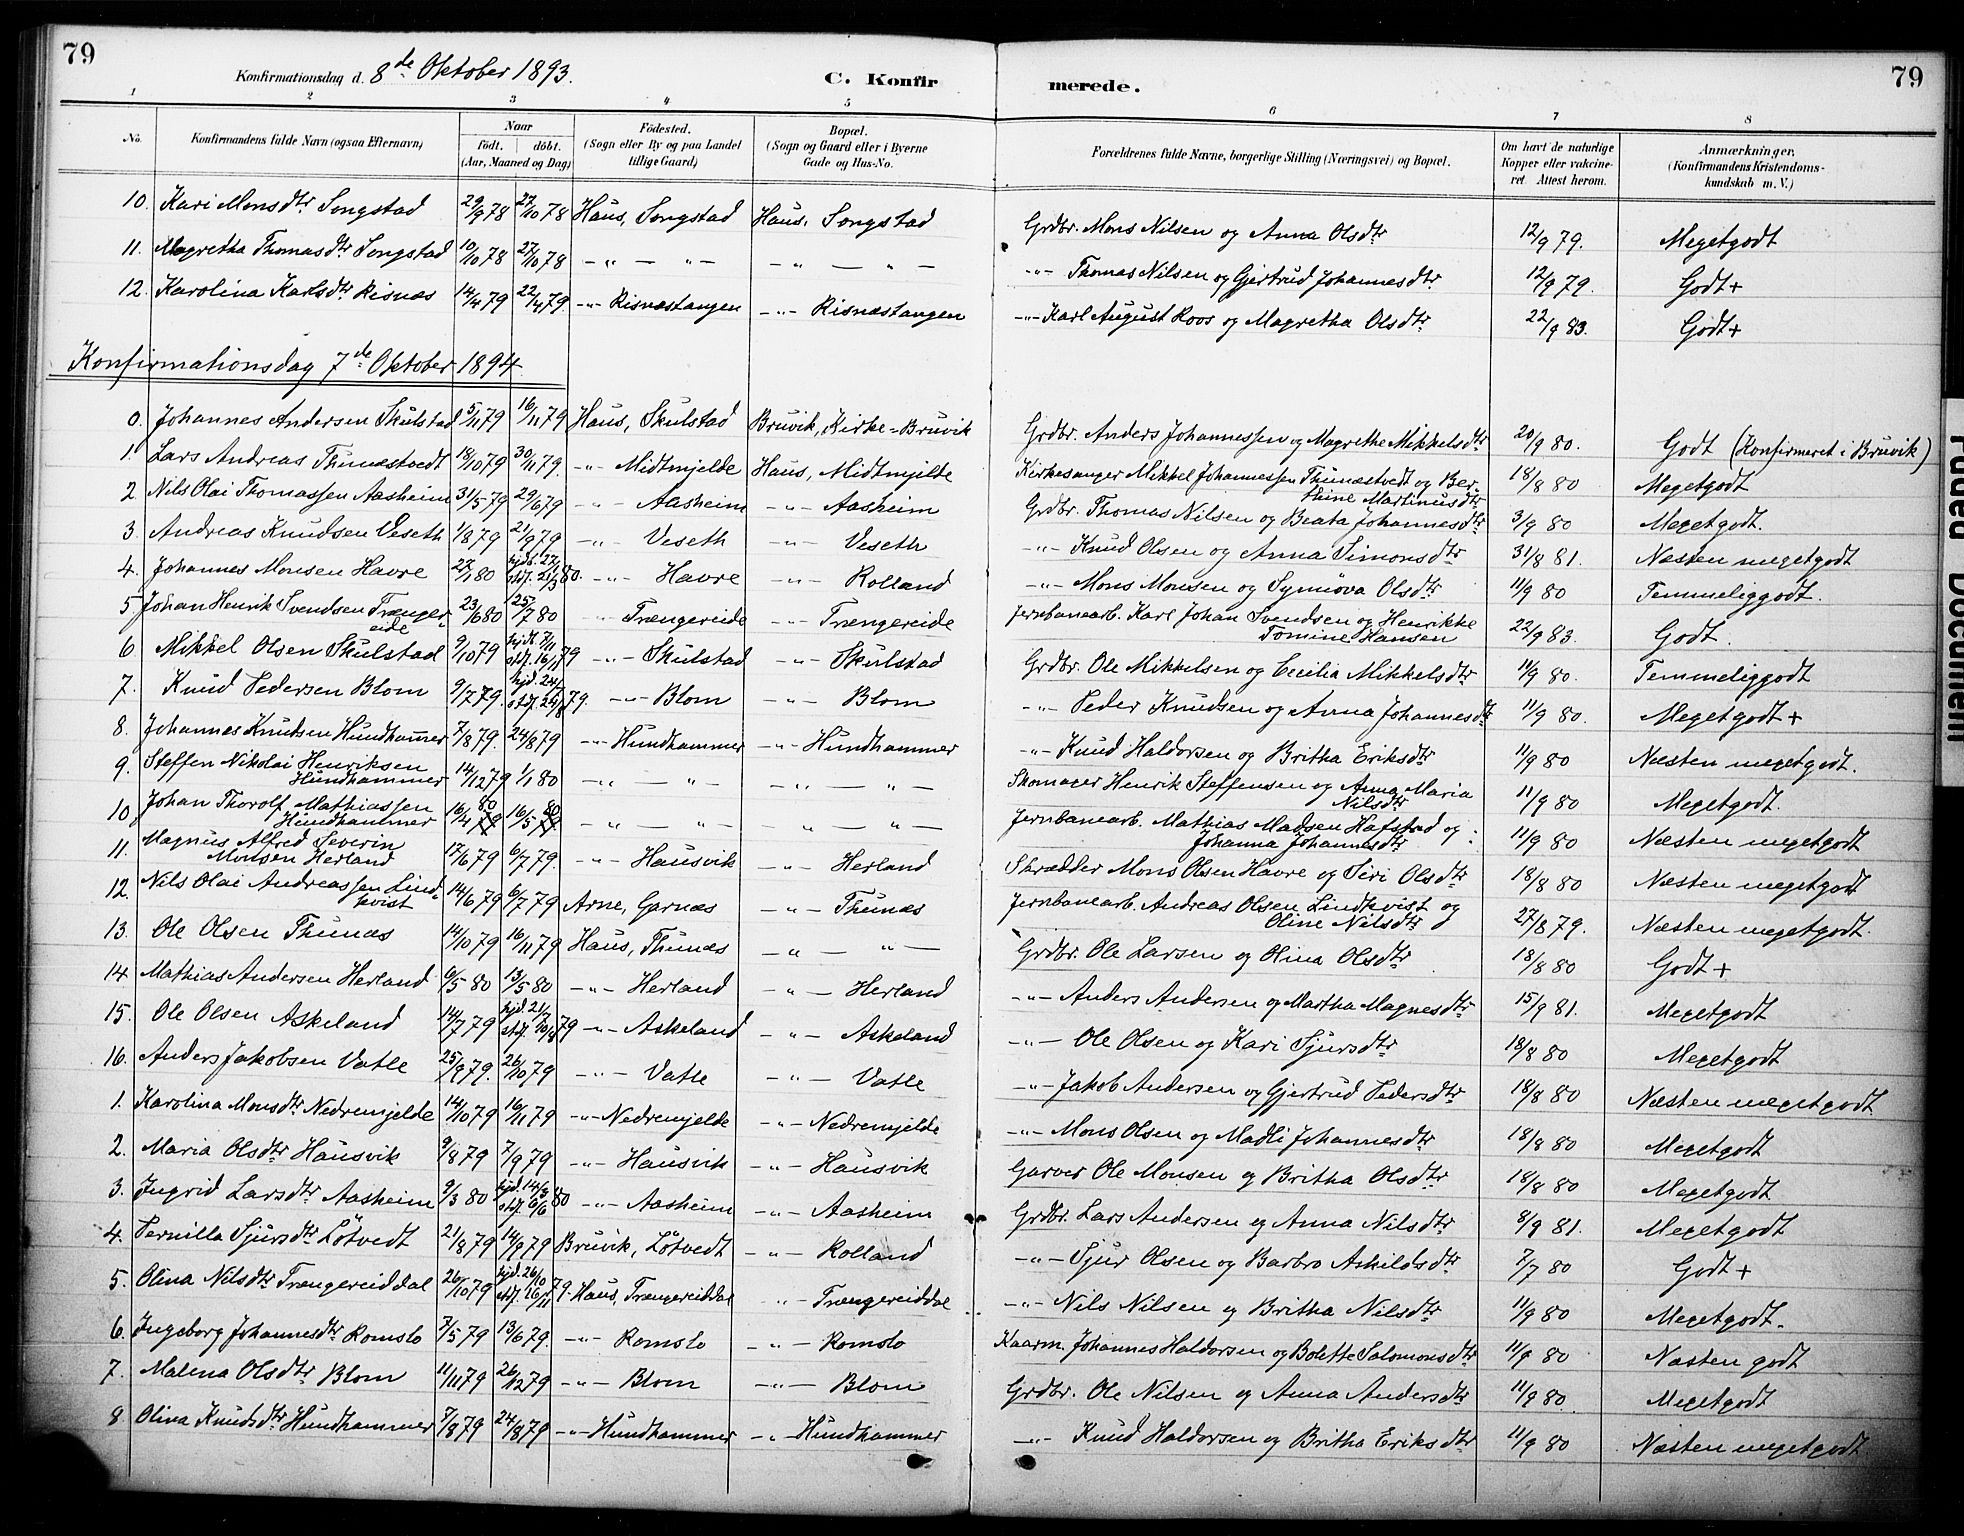 79
Konfirmationsdag d. 8de Oktober 1893.
C. Konfir merede.
79
1 2 3 4 5 6 7 8
No. Konfirmandens fulde Navn (ogsaa Efternavn) Naar födt. döbt. (Aar, Maaned og Dag) Födested. (Sogn eller By og paa Landet tillige Gaard) Bopæl. (Sogn og Gaard eller i Byerne Gade og Hus-No. Forældrenes fulde Navne, borgerlige Stilling (Næringsvei) og Bopæl. Om havt de naturlige Kopper eller vakcineret. Attest herom. Anmærkninger, (Konfirmandens Kristendomskundskab m. V.)
10. Kari Monsdtr Songstad 29/9 78 27/10 78 Haus, Songstad Haus, Songstad Grdbr. Mons Nilsen og Anna Olsdtr 12/9 79. Megetgodt
11. Magretha Thomasdtr Songstad 10/10 78 27/10 78 -"- -"- -"- -"- -"- Thomas Nilsen og Gjertrud Johannesdtr 12/9 79. Godt+
12. Karolina Karlsdtr Risnæs 14/4 79 22/4 79. -"- Risnæstangen -"- Risnæstangen -"- Karl August Roos og Magretha Olsdtr 22/9 83. Godt+
Konfirmationsdag 7de Oktober 1894
0. Johannes Andersen Skulstad 5/11 79 16/11 79 Haus, Skulstad Bruvik, Kirke-Bruvik Grdbr. Anders Johannessen og Magrethe Mikkelsdtr 20/9 80. Godt (Konfirmeret i Bruvik)
1. Lars Andreas Thunæstvedt 18/10 79 30/11 79. -"- Midtmjelde Haus, Midtmjelde Kirkesanger Mikkel Johannessen Thunæstvedt og Berthine Martinusdtr 18/8 80 Megetgodt
2. Nils Olai Thomassen Aasheim 31/5 79 29/6 79 -"- Aasheim -"- Aasheim Grdbr. Thomas Nilsen og Beata Johannesdtr 3/9 80 Megetgodt.
3. Andreas Knudsen Veseth 1/8 79 21/9 79 -"- Veseth -"- Veseth -"- Knud Olsen og Anna Simonsdtr 31/8 81. Næsten megetgodt
4. Johannes Monsen Havre 27/1 80 hjdt. 27/1 stdf. 21/3 80. -"- Havre -"- Rolland -"- Mons Monsen og Synnöva Olsdtr 11/9 80 Temmeliggodt.
5. Johan Henrik Svendsen Trængereide 23/6 80 25/7 80 -"- Trængereide -"- Trængereide Jernbanearb. Karl Johan Svendsen og Henrikke Tomine Hansen 22/9 83. Godt.
6. Mikkel Olsen Skulstad 9/10 79 hjdt. 7/11 stdf. 16/11 79 -"- Skulstad -"- Skulstad Grdbr. Ole Mikkelsen og Cecilia Mikkelsdtr 11/9 80. Temmeliggodt
7. Knud Pedersen Blom 9/7 79. hjd. 24/7 stdf. 24/8 79. -"- Blom -"- Blom -"- Peder Knudsen og Anna Johannesdtr 11/9 80. Megetgodt+
8. Johannes Knudsen Hundhamer 7/8 79. 24/8 79 -"- Hundhammer -"- Hundhammer -"- Knud Haldorsen og Britha Eriksdtr 11/9 80 Næsten megetgodt.
9. Steffen Nikolai Henriksen Hundhammer 14/12 79 1/1 80 -"- -"- -"- -"- Skomager Henrik Steffensen og Anna Maria Nilsdtr 11/9 80 Megetgodt.
10. Johan Thorolf Mathiassen Hundhammer 16/4 80 16/5 80 -"- -"- -"- -"- Jernbanearb. Mathias Madsen Hafstad og Johanna Johannesdtr 11/9 80 Næsten megetgodt
11. Magnus Alfred Severin Monsen Herland 17/6 79 6/7 79. -"- Hausvik -"- Herland Skrædder Mons Olsen Havre og Siri Olsdtr 18/8 80 Næsten megetgodt
12. Nils Olai Andreassen Lindkvist 14/6 79 6/7 79 Arne, Garnæs -"- Thunæs Jernbanearb. Andreas Olsen Lindkvist og Oline Nilsdtr 27/8 79. Næsten megetgodt.
13. Ole Olsen Thunæs 14/10 79 16/11 79 Haus, Thunæs -"- -"- Grdbr. Ole Larsen og Olina Olsdtr 18/8 80 Godt+
14 Mathias Andersen Herland 6/5 80 13/5 80 -"- Herland -"- Herland -"- Anders Andersen og Martha Magnesdtr 15/9 81. Megetgodt
15. Ole Olsen Askeland 14/7 79 hjd. 21/7 stdf. 10/8 79 -"- Askeland -"- Askeland -"- Ole Olsen og Kari Sjursdtr 18/8 80 Megetgodt
16. Anders Jakobsen Vatle 25/9 79. 26/10 79 -"- Vatle -"- Vatle -"- Jakob Andersen og Gjertrud Pedersdtr 18/8 80 Næsten megetgodt
1. Karolina Monsdtr Nedremjelde 14/10 79 16/11 79 -"- Nedremjelde -"- Nedremjelde -"- Mons Olsen og Madli Johannesdtr 18/8 80 Megetgodt
2. Maria Olsdtr Hausvik 9/8 79 7/9 79 -"- Hausvik -"- Hausvik Garver Ole Monsen og Britha Olsdtr 18/8 80 Megetgodt
3. Ingrid Larsdtr Aasheim 9/3 80 hjd. 14/3 stdf. 6/6 80 -"- Aasheim -"- Aasheim Grdbr. Lars Andersen og Anna Nilsdtr 8/9 81. Megetgodt
4. Pernilla Sjursdtr Lötvedt 21/8 79 14/9 79 Bruvik, Lötvedt -"- Rolland -"- Sjur Olsen og Barbro Askildsdtr 7/7 80 Godt+
5. Olina Nilsdtr Trængereiddal 26/10 79 hjd. 26/10 stdf. 16/11 79. Haus, Trængereiddal -"- Trængereiddal -"- Nils Nilsen og Britha Nilsdtr 11/9 80 Megetgodt.
6. Ingeborg Johannesdtr Romslo 7/5 79 13/6 79. -"- Romslo -"- Romslo Kaarm. Johannes Haldorsen og Bolette Salomonsdtr 11/9 80 Næsten godt
7. Malena Olsdtr Blom 11/11 79 26/12 79 -"- Blom -"- Blom Grdbr. Ole Nilsen og Anna Andersdtr 11/9 80. Megetgodt
8. Olina Knudsdtr Hundhammer 7/8 79 24/8 79 -"- Hundhammer -"- Hundhammer -"- Knud Haldorsen og Britha Eriksdtr 11/9 80 Næsten megetgodt